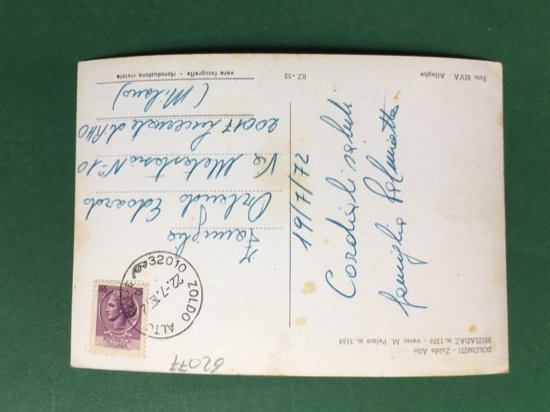 DOLOMITI - Zoldo Alto
BRUSADAZ m. 1376 - verso M. Pelmo m. 3168
19/7/72
Cordiali saluti
famiglia
Foto RIVA Alleghe
RZ - 52
32010 ZOLDO ALTO
22-7-1972
Famiglia
Orlando Edoardo
Via Metastasio N° 10
20017 Lucernate di Rho
(Milano)
vera fotografia - riproduzione vietata
62077